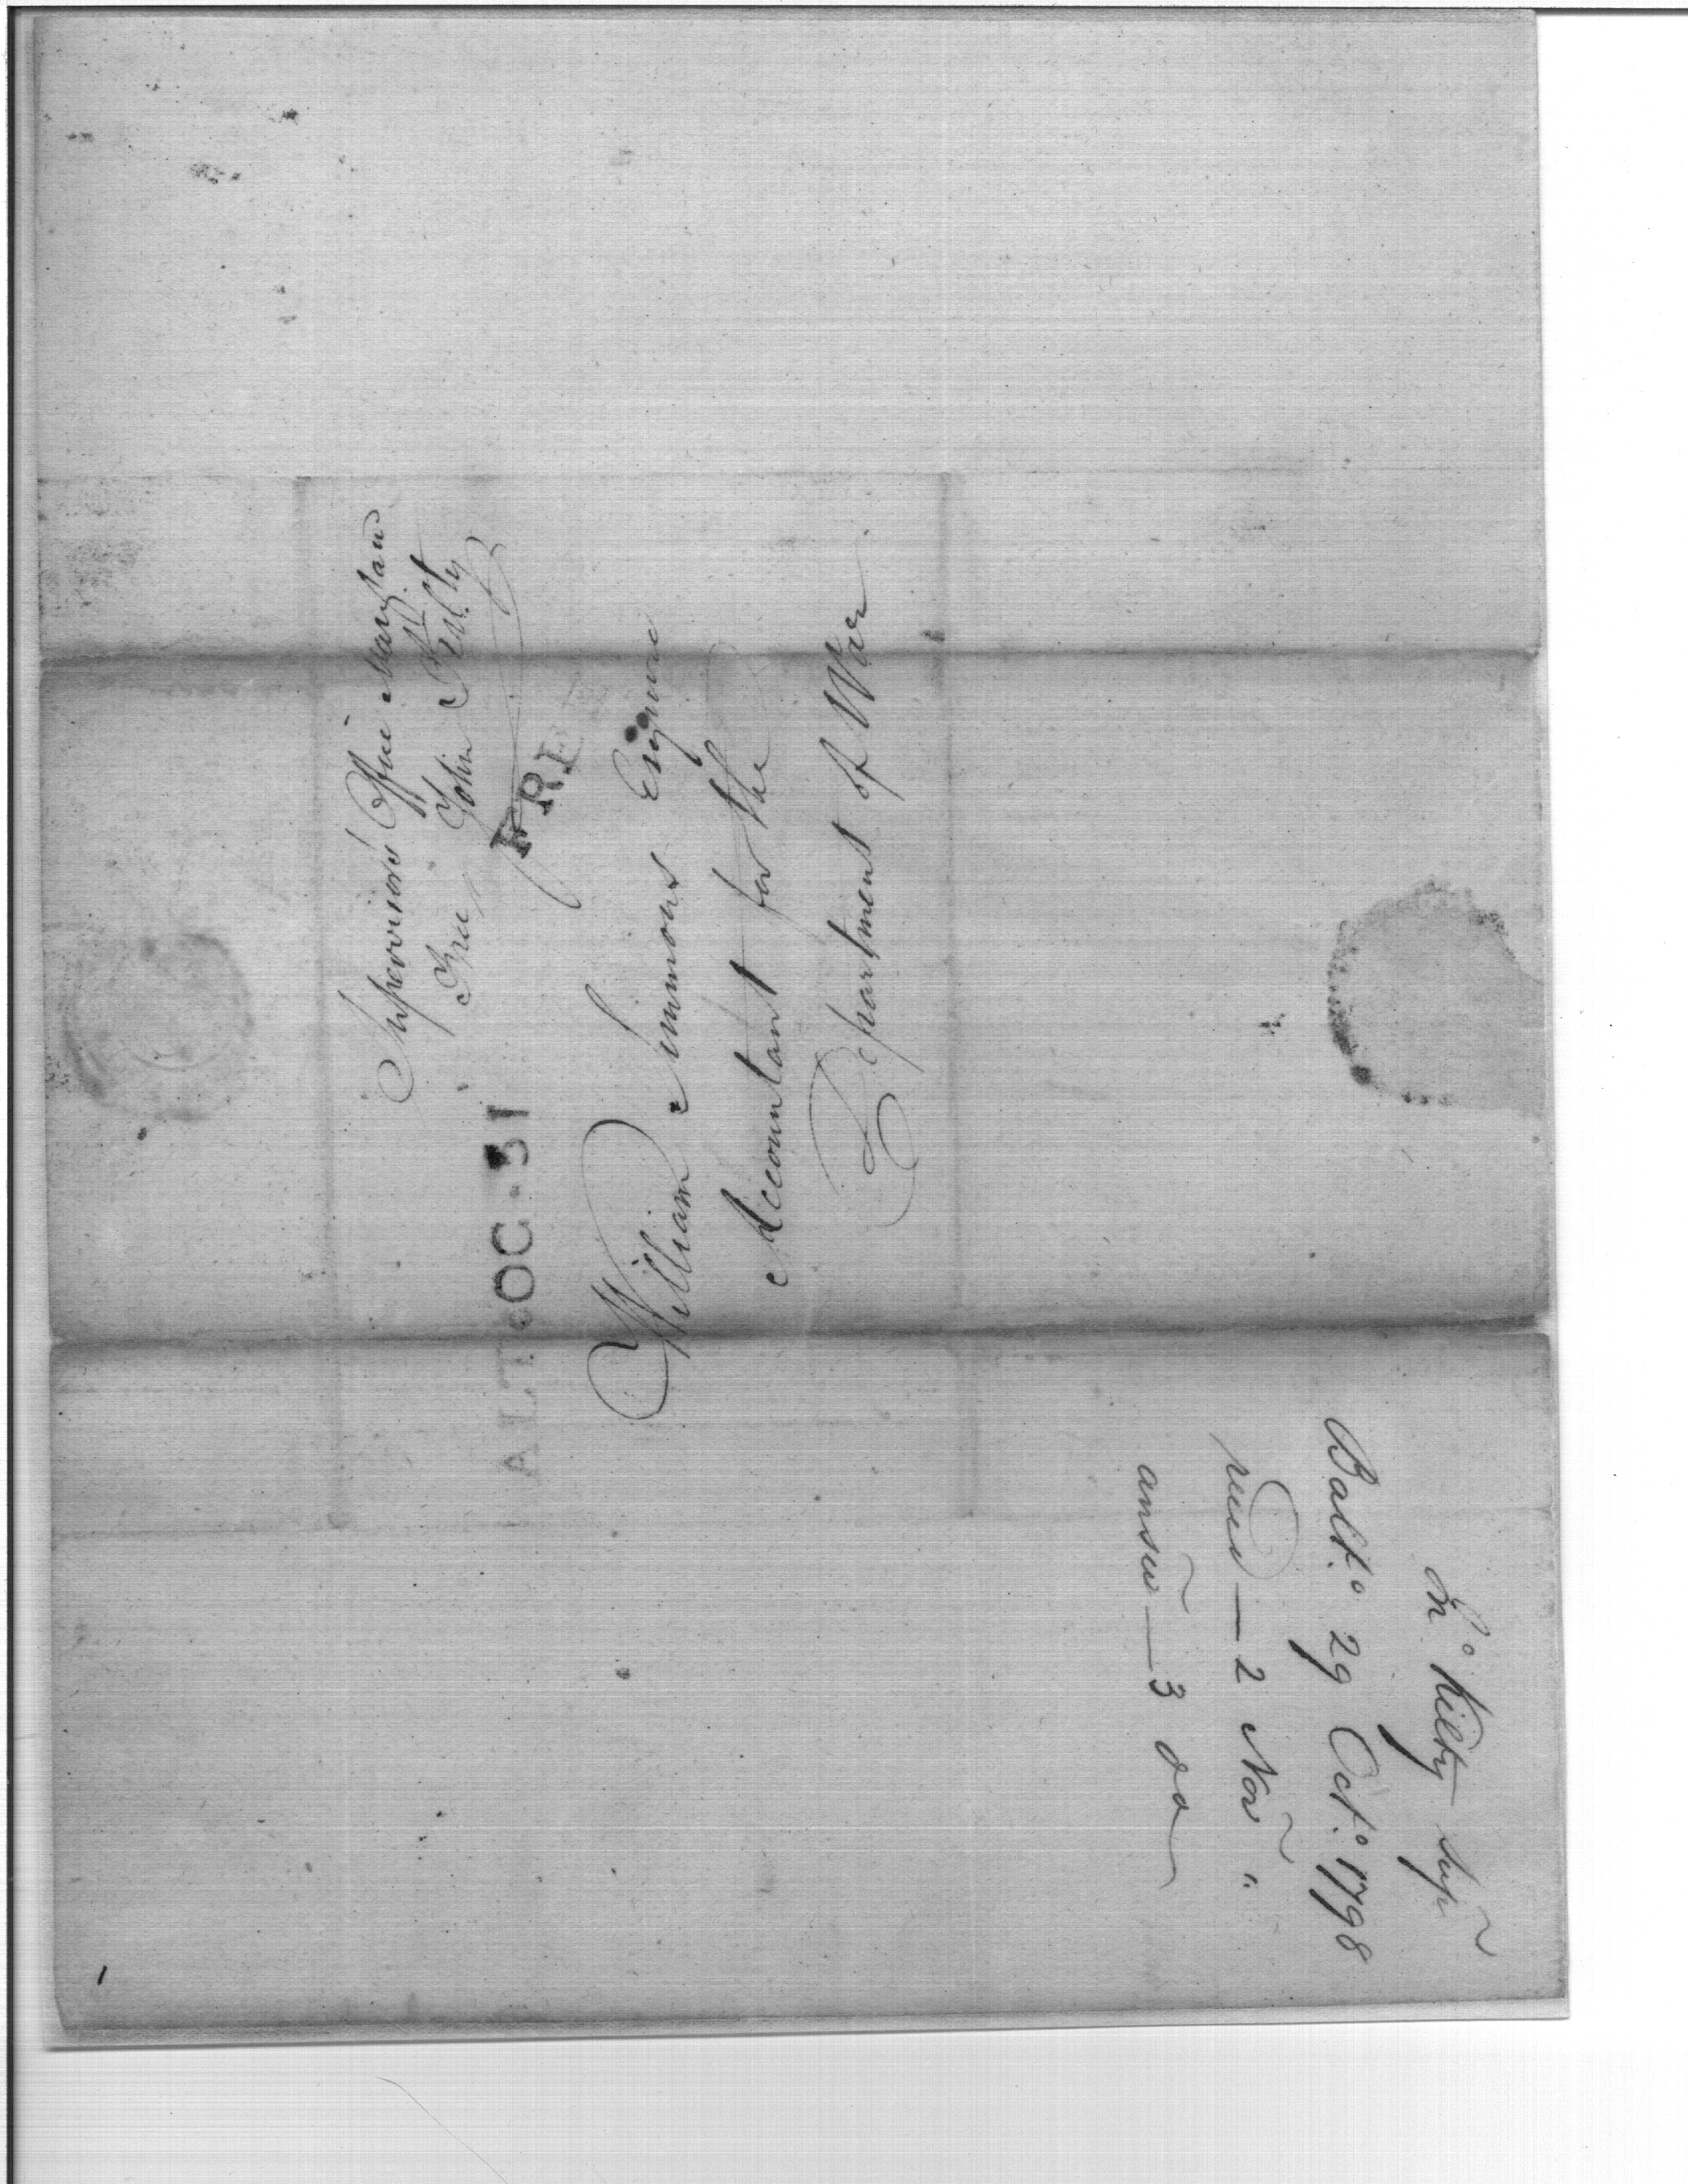 Supervisors Office Maryland
Free John Kilty
FRE
ALT OC 31
William Simmons Esquire
Accountant for the
Department of War
Jnº Kilty Sup
Baltº 29 Octº 1798
recd — 2 Nov "
answd — 3 do